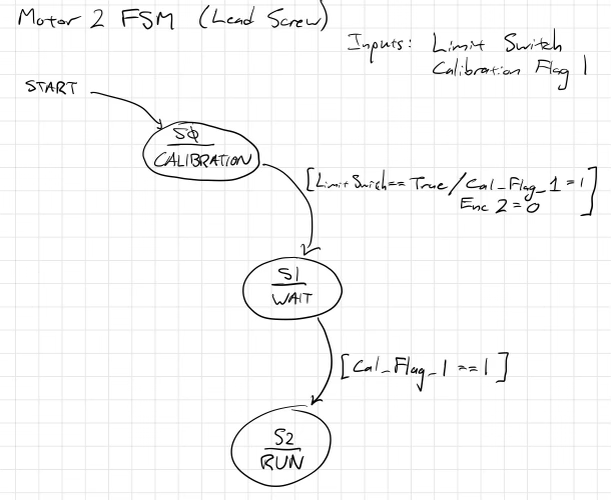 Motor 2 FSM (Lead Screw)
Inputs: Limit Switch
Calibration Flag 1
START
SØ
CALIBRATION
[Limit Swich== True / Cal_Flag_1 = 1
Enc 2 = 0 ]
S1
WAIT
[Cal_Flag_1 ==1 ]
S2
RUN